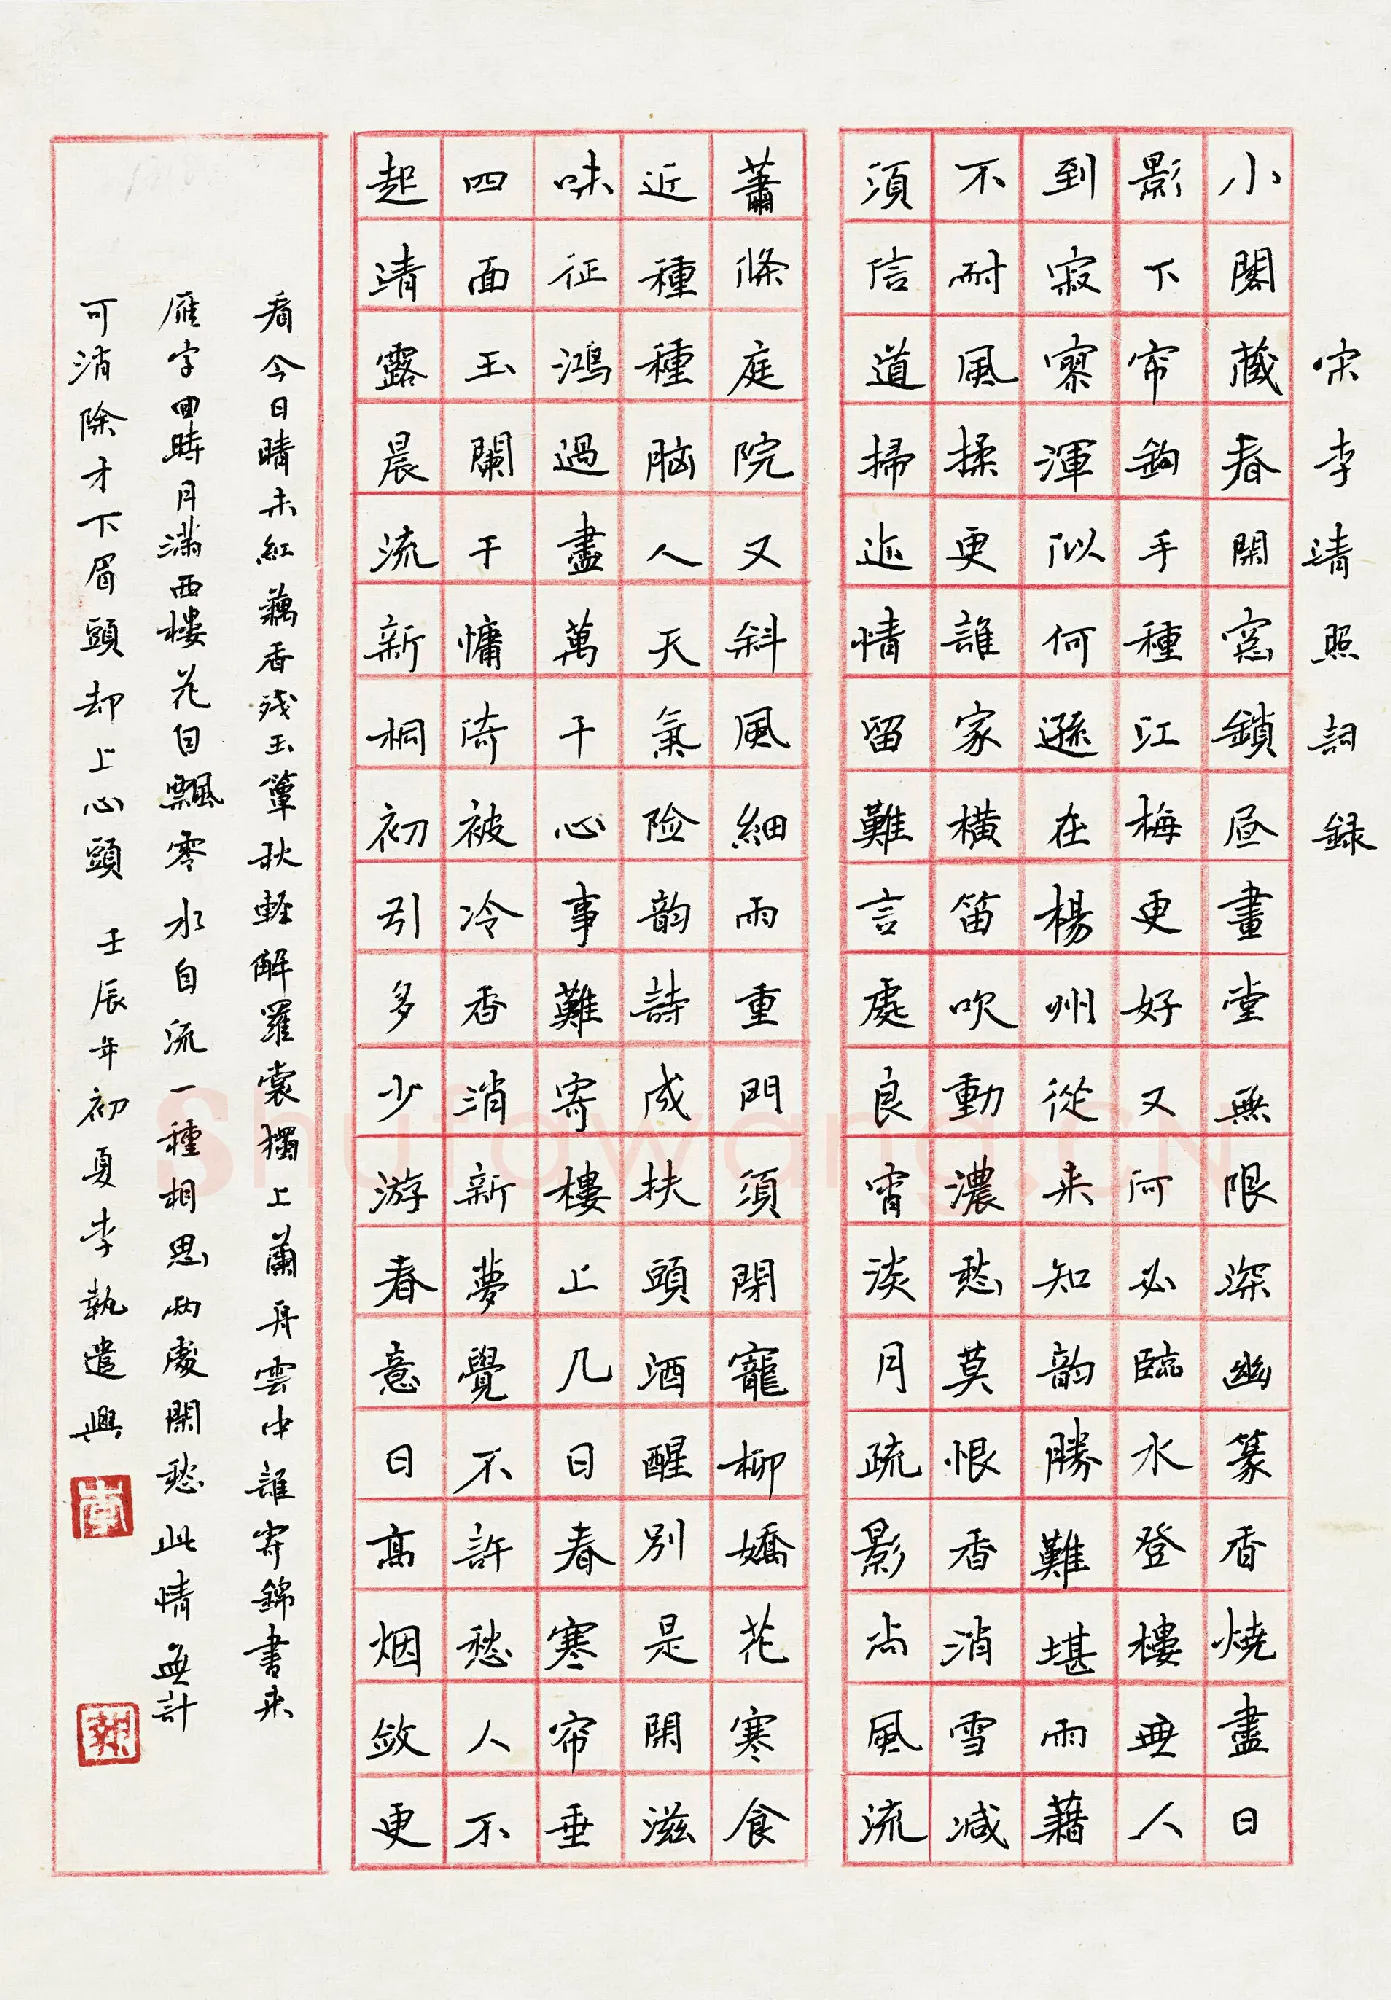 宋李清照詞録
小閣藏春閑窓鎖昼畫堂無限深幽篆香燒盡日
影下帘鈎手種江梅更好又何必臨水登樓無人
到寂寥渾似何遜在楊州從来知韵勝難堪雨藉
不耐風揉更誰家橫笛吹動濃愁莫恨香消雪减
須信道掃迹情留難言處良宵淡月疏影尚風流
蕭條庭院又斜風細雨重門須閉寵柳嬌花寒食
近種種脑人天氣险韵詩成扶頭酒醒别是閑滋
味征鴻過盡萬千心事難寄樓上几日春寒帘垂
四面玉闌干慵倚被冷香消新夢覺不許愁人不
起清露晨流新桐初引多少游春意日高烟斂更
看今日晴未紅藕香残玉簟秋輕解羅裳獨上蘭舟雲中誰寄錦書来
雁字回時月滿西樓花自飄零水自流一種相思兩處閑愁此情無計
可消除才下眉頭却上心頭 壬辰年初夏李執遣興
李
執
Shufawang.CN